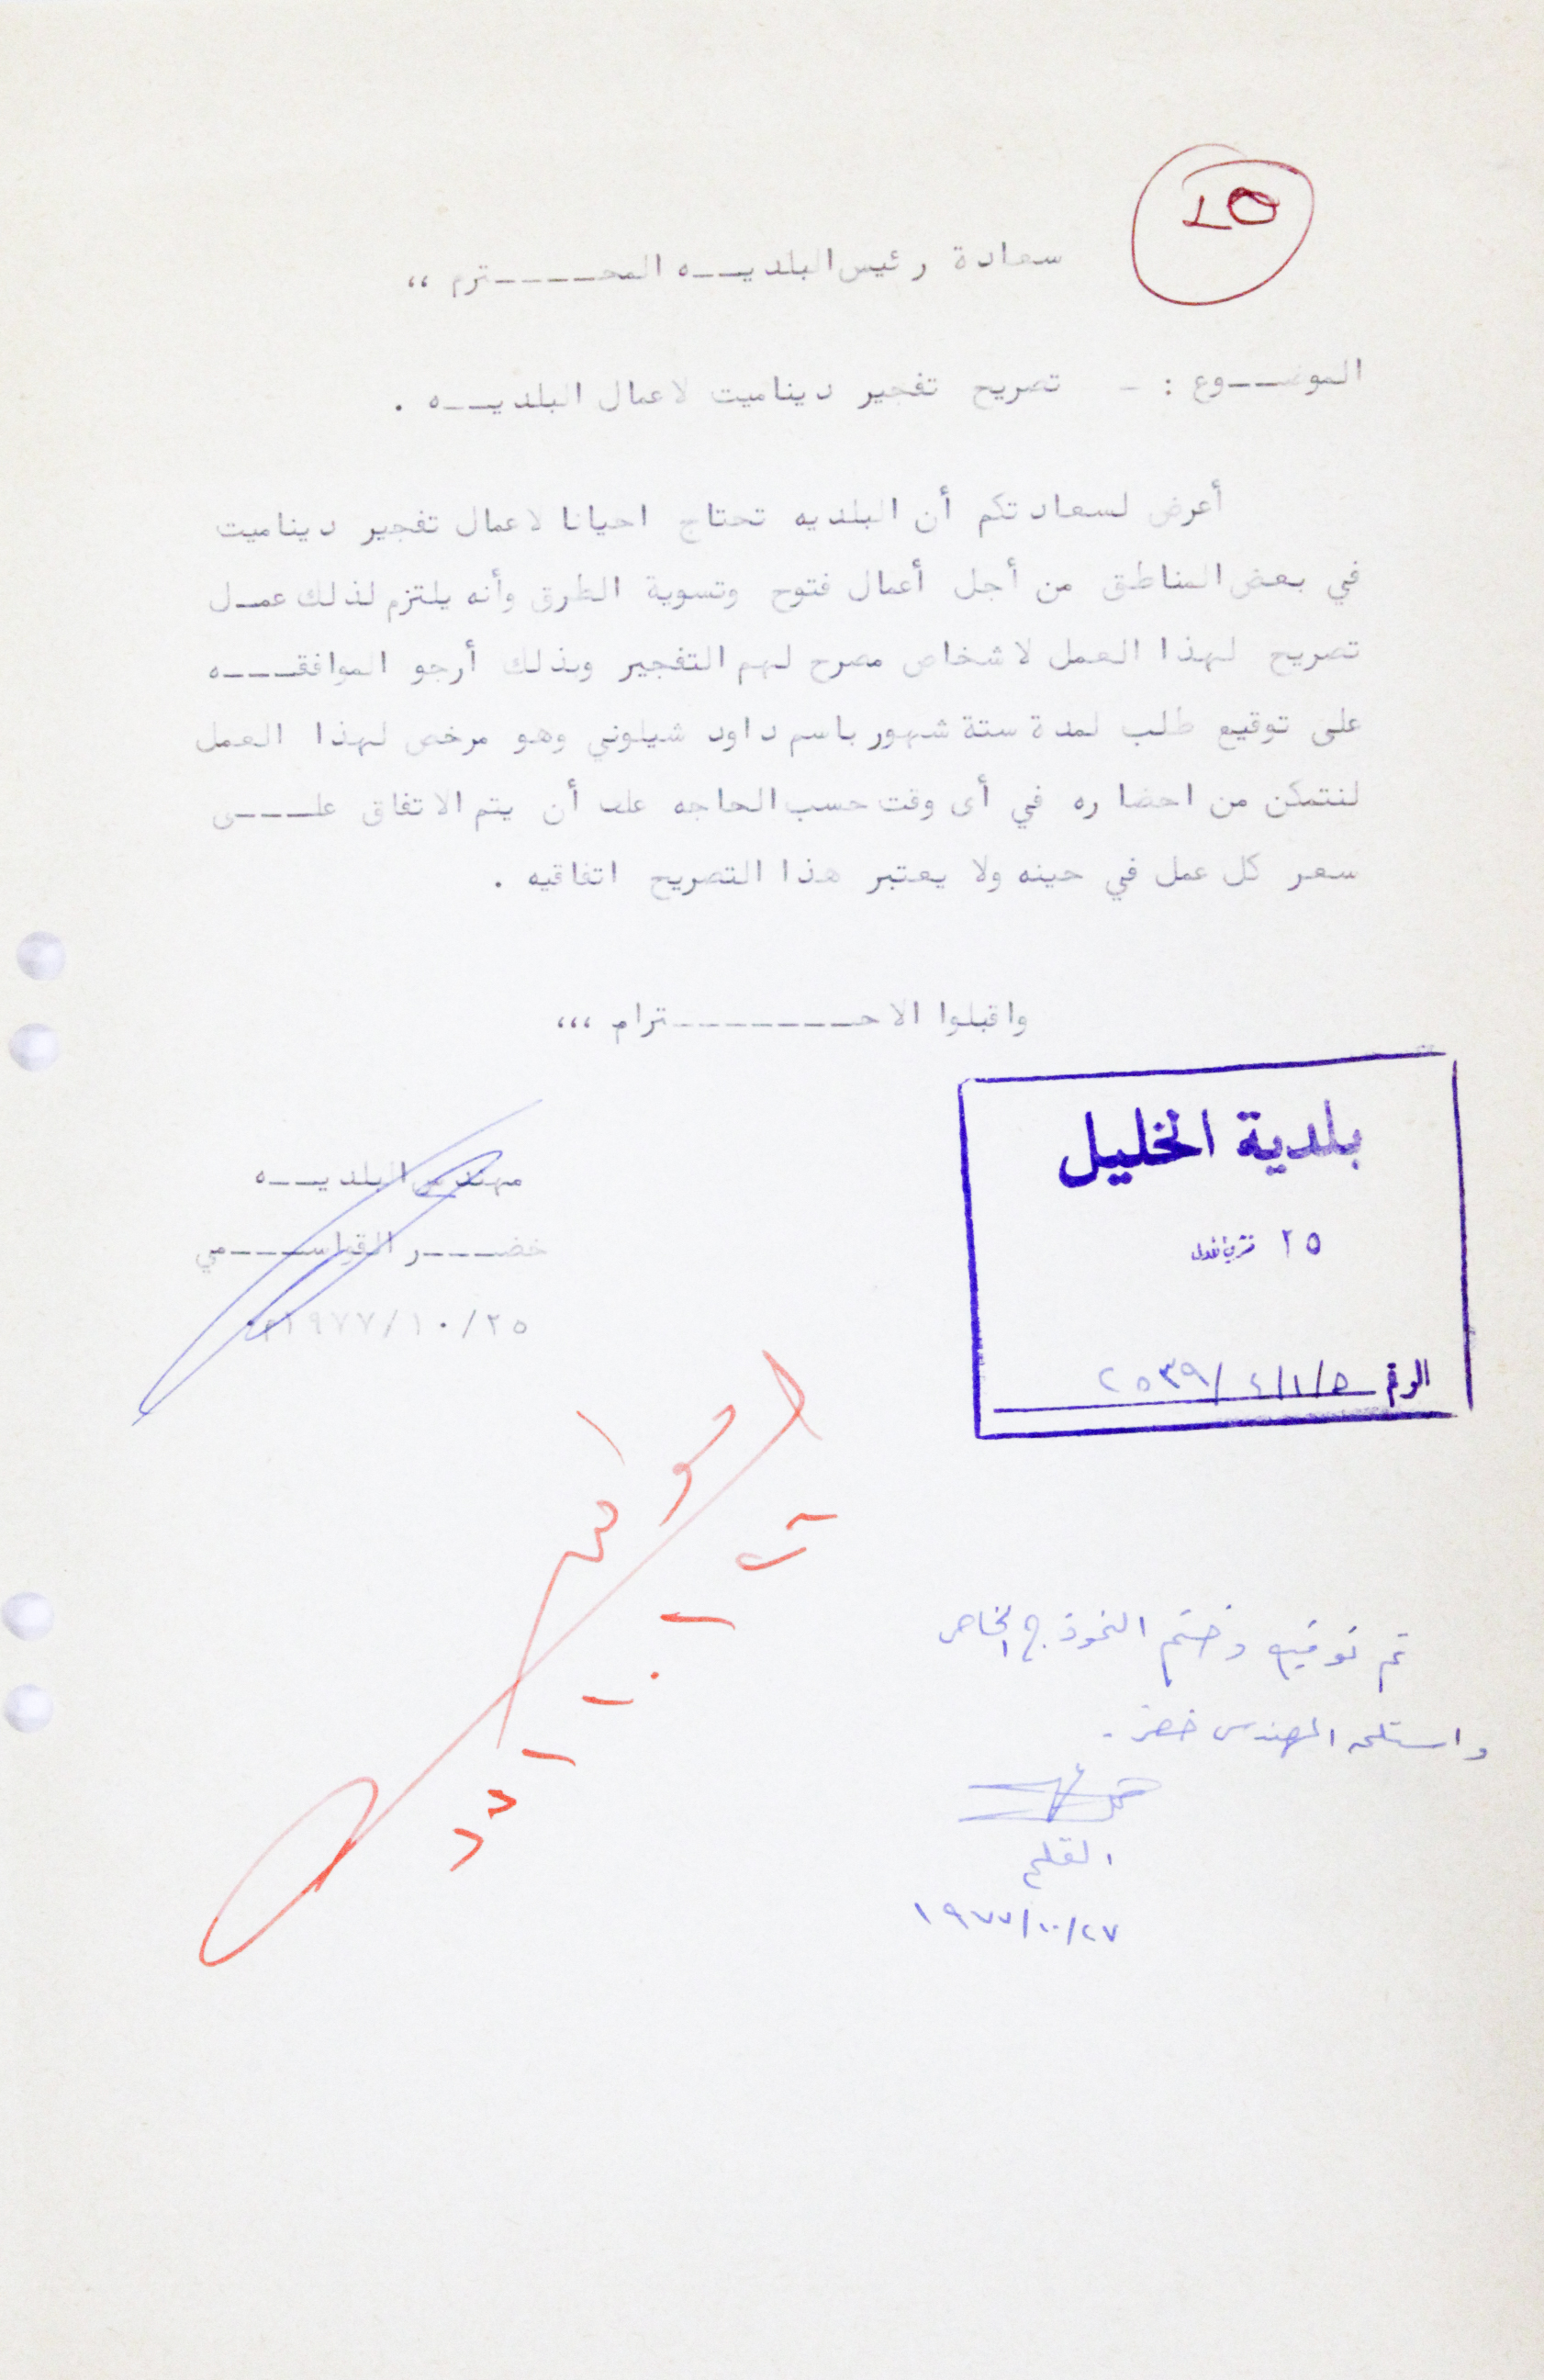 ٢٥
سعادة رئيس البلديـــه المحـــــترم ،،
الموضـــوع : - تصريح تفجير ديناميت لاعمال البلديـــه .
أعرض لسعادتكم أن البلديه تحتاج احيانا لاعمال تفجير ديناميت
في بعض المناطق من أجل أعمال فتوح وتسوية الطرق وأنه يلتزم لذلك عمـل
تصريح لهذا العمل لاشخاص مصرح لهم التفجير وبذلك أرجو الموافقـــه
على توقيع طلب لمدة ستة شهور باسم داود شيلوني وهو مرخص لهذا العمل
لنتمكن من احضاره في أى وقت حسب الحاجه على أن يتم الاتفاق علـــى
سعر كل عمل في حينه ولا يعتبر هذا التصريح اتفاقيه .
واقبلوا الاحــــــــترام ،،،
مهندس البلديـــه
خضـــر القواســـمي
١٩٧٧/١٠/٢٥م
بلدية الخليل
٢٥ تشرين اول
الرقم ٢٥٣٩/٤/١/٥
اوافق
١٠
٧٧
تم توقيع وختم النموذج الخاص
واستلمه المهندس خضر .
القلم
١٩٧٧/١٠/٢٧